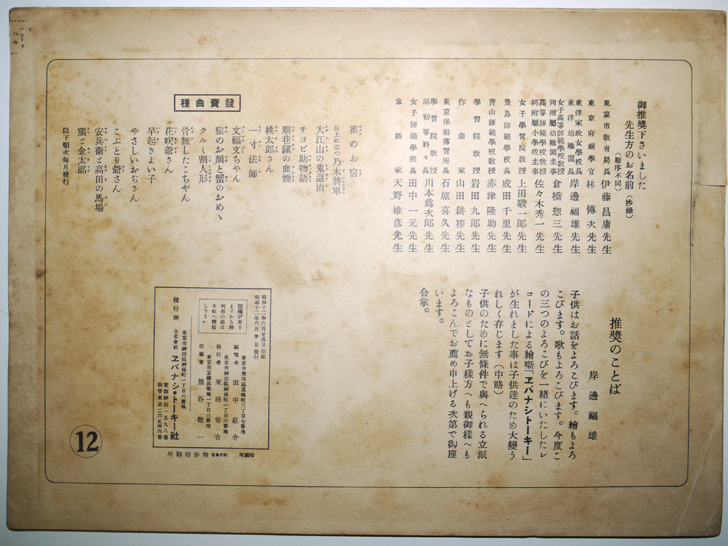 推奬のことば
岸邊福雄
子供はお話をよろこびます。繪もよろ
こびます。歌もよろこびます。今度こ
の三つのよろこびを一緒にいたしたレ
コードによる繪噺「ヱバナシトーキー」
が生れました事は子供達のため大變う
れしく存じます(中略)
子供のために無條件で與へられる立派
なものとしてお子樣方へも親御樣へも
よろこんでお薦め申上げる次第で御座
います。
合掌。
御推奬下さいました
先生方のお名前(抄錄)
(順序不同)
東京市敎育局長 伊藤昌庸先生
東京府視學官 林傳次先生
東洋家政女學校長
東洋幼稚園長 岸邊福雄先生
女子高等師範學校敎授
同附屬幼稚園主事 倉橋惣三先生
高等師範學校敎授
同附屬小學校主事 佐々木秀一先生
女子學習院敎授 上田駿一郎先生
豊島師範學校長 成田千里先生
靑山師範學校長 赤津隆助先生
學習院敎授 岩田九郎先生
作曲家 山田耕筰先生
東京保姆傳習所長 石原喜久先生
學習院敎授
同初等科長 川本爲次郎先生
女子師範學校長 田中一元先生
童話家 天野雄彦先生
發賣曲種
雀のお宿
乃木將軍
大江山の鬼退治
チヨビ助物語
廟巷鎭の血煙
桃太郎さん
一寸法師
文福文ちゃん
狐のお顏と蟹のおめゝ
クルミ割人形
骨無したこちゃん
花咲爺さん
早起きよい子
やさしいおぢさん
こぶとり爺さん
安兵衛と高田の馬場
熊と金太郎
以下順次每月發行
昭和十二年六月
昭和十二年六月
印刷
發行
編輯者 田中莊介
發行者 栗田常吉
印刷者 熊谷敬一
發行所
東京市神田區神保町一丁目六番地
合名會社 ヱバナシ・トーキー社
12